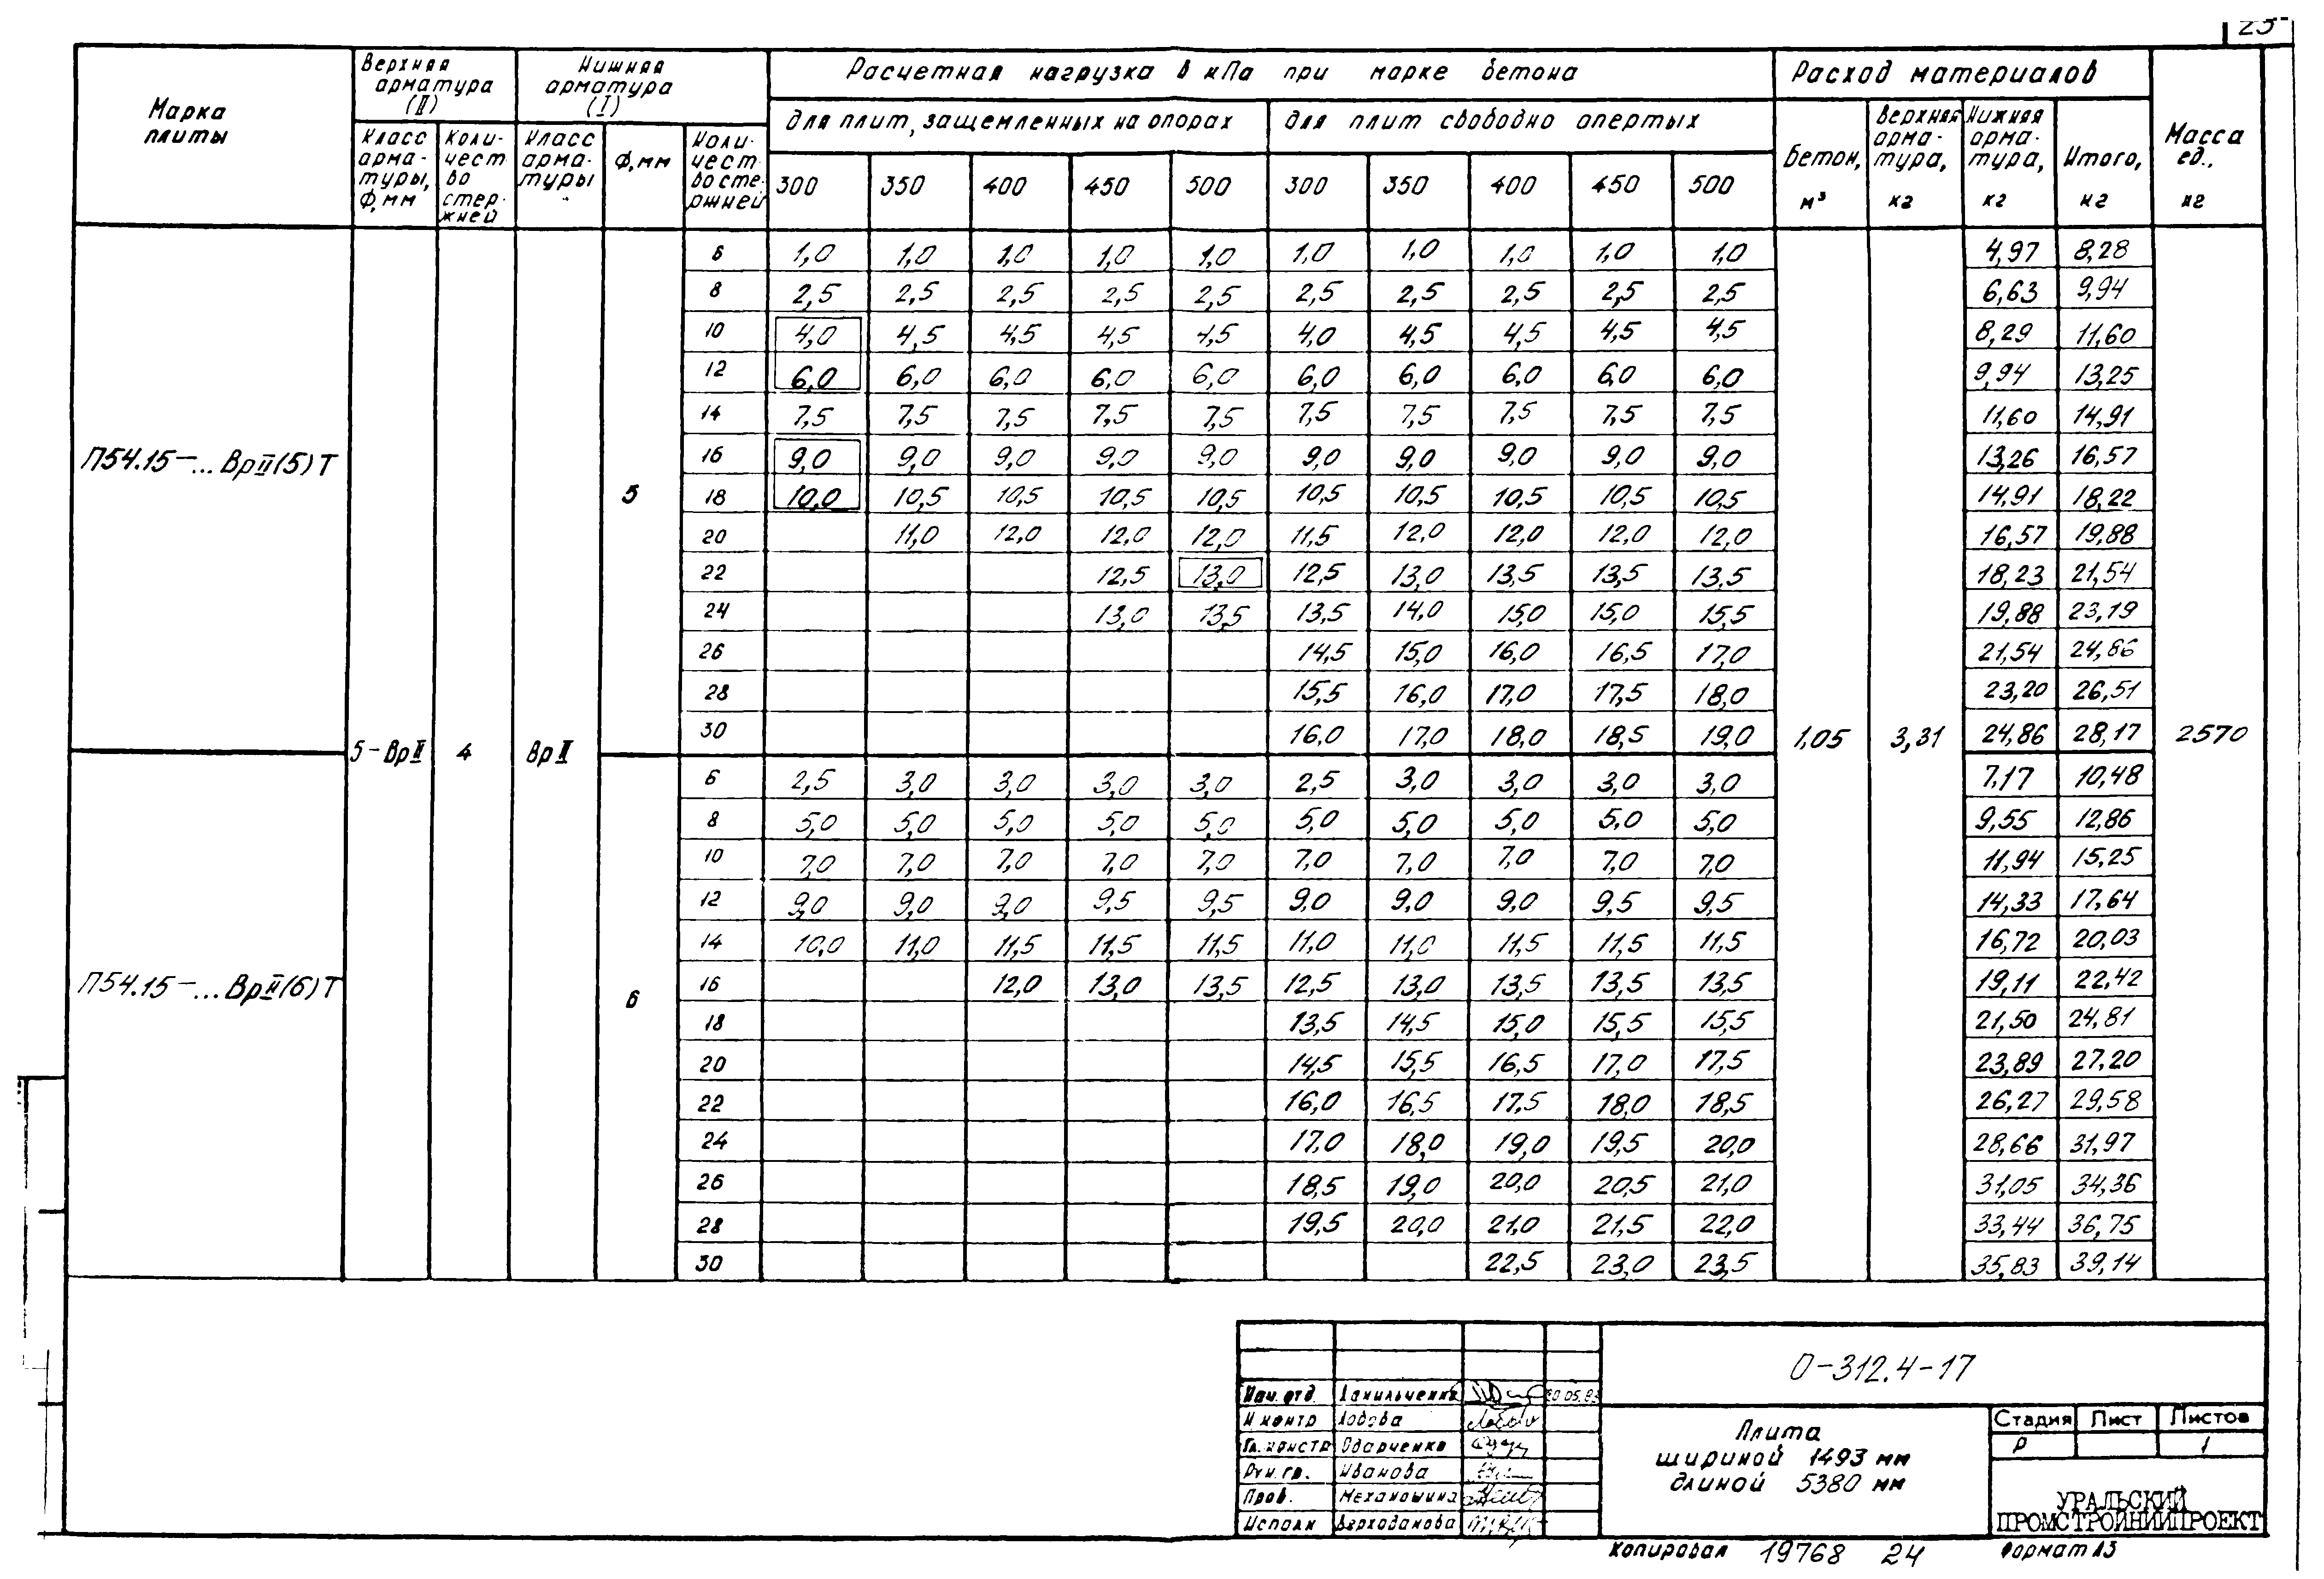 25
Марка плиты
Верхняя арматура (II)
Нижняя арматура (I)
Расчетная нагрузка в кПа при марке бетона
Расход материалов
Масса ед., кг
для плит, защемленных на опорах
для плит свободно опертых
Класс арма-туры, Ф,мм
Коли-чест во стер-жней
Класс арма-туры
Ф,мм
Коли-чест во сте-ржней
300 350 400 450 500 300 350 400 450 500
Бетон, м³
Верхняя арма-тура, кг
Нижняя арма-тура, кг
Итого, кг
П54.15-...ВрII(5)Т
5-ВрII 4 ВрII 5
6 1,0 1,0 1,0 1,0 1,0 1,0 1,0 1,0 1,0 1,0 4,97 8,28
8 2,5 2,5 2,5 2,5 2,5 2,5 2,5 2,5 2,5 2,5 6,63 9,94
10 4,0 4,5 4,5 4,5 4,5 4,0 4,5 4,5 4,5 4,5 8,29 11,60
12 6,0 6,0 6,0 6,0 6,0 6,0 6,0 6,0 6,0 6,0 9,94 13,25
14 7,5 7,5 7,5 7,5 7,5 7,5 7,5 7,5 7,5 7,5 11,60 14,91
16 9,0 9,0 9,0 9,0 9,0 9,0 9,0 9,0 9,0 9,0 13,26 16,57
18 10,0 10,5 10,5 10,5 10,5 10,5 10,5 10,5 10,5 10,5 14,91 18,22
20 11,0 12,0 12,0 12,0 11,5 12,0 12,0 12,0 12,0 16,57 19,88
22 12,5 13,0 12,5 13,0 13,5 13,5 13,5 18,23 21,54
24 13,0 13,5 13,5 14,0 15,0 15,0 15,5 19,88 23,19
26 14,5 15,0 16,0 16,5 17,0 21,54 24,86
28 15,5 16,0 17,0 17,5 18,0 23,20 26,51
30 16,0 17,0 18,0 18,5 19,0 24,86 28,17
1,05 3,31 2570
П54.15-...ВрII(6)Т
6
6 2,5 3,0 3,0 3,0 3,0 2,5 3,0 3,0 3,0 3,0 7,17 10,48
8 5,0 5,0 5,0 5,0 5,0 5,0 5,0 5,0 5,0 5,0 9,55 12,86
10 7,0 7,0 7,0 7,0 7,0 7,0 7,0 7,0 7,0 7,0 11,94 15,25
12 9,0 9,0 9,0 9,5 9,5 9,0 9,0 9,0 9,5 9,5 14,33 17,64
14 10,0 11,0 11,5 11,5 11,5 11,0 11,0 11,5 11,5 11,5 16,72 20,03
16 12,0 13,0 13,5 12,5 13,0 13,5 13,5 13,5 19,11 22,42
18 13,5 14,5 15,0 15,5 15,5 21,50 24,81
20 14,5 15,5 16,5 17,0 17,5 23,89 27,20
22 16,0 16,5 17,5 18,0 18,5 26,27 29,58
24 17,0 18,0 19,0 19,5 20,0 28,66 31,97
26 18,5 19,0 20,0 20,5 21,0 31,05 34,36
28 19,5 20,0 21,0 21,5 22,0 33,44 36,75
30 22,5 23,0 23,5 35,83 39,14
0-312.4-17
Нач. отд. Данильченко
Н контр Лобова
Гл. констр Одарченко
Рук. гр. Иванова
Пров. Механошина
Исполн
Плита
шириной 1493 мм
длиной 5380 мм
Стадия Лист Листов
Р 1
УРАЛЬСКИЙ
ПРОМСТРОЙНИИПРОЕКТ
Копировал 19768 24 Формат А3